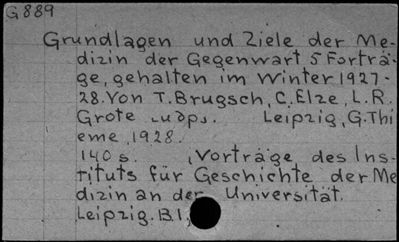 G889
Grundlagen und Ziele der Me-
dizin der Gegenwart 5 Forträ-
ge, gehalten im Winter 1927-
28. Von T. Brugsch, C. Elze, L.R.
Grote u. dps. Leipzig, G. Thi
eme, 1928.
140 s. (Vorträge des Ins-
tituts für Geschichte der Me
dizin an der Universität
Leipzig. B.1)